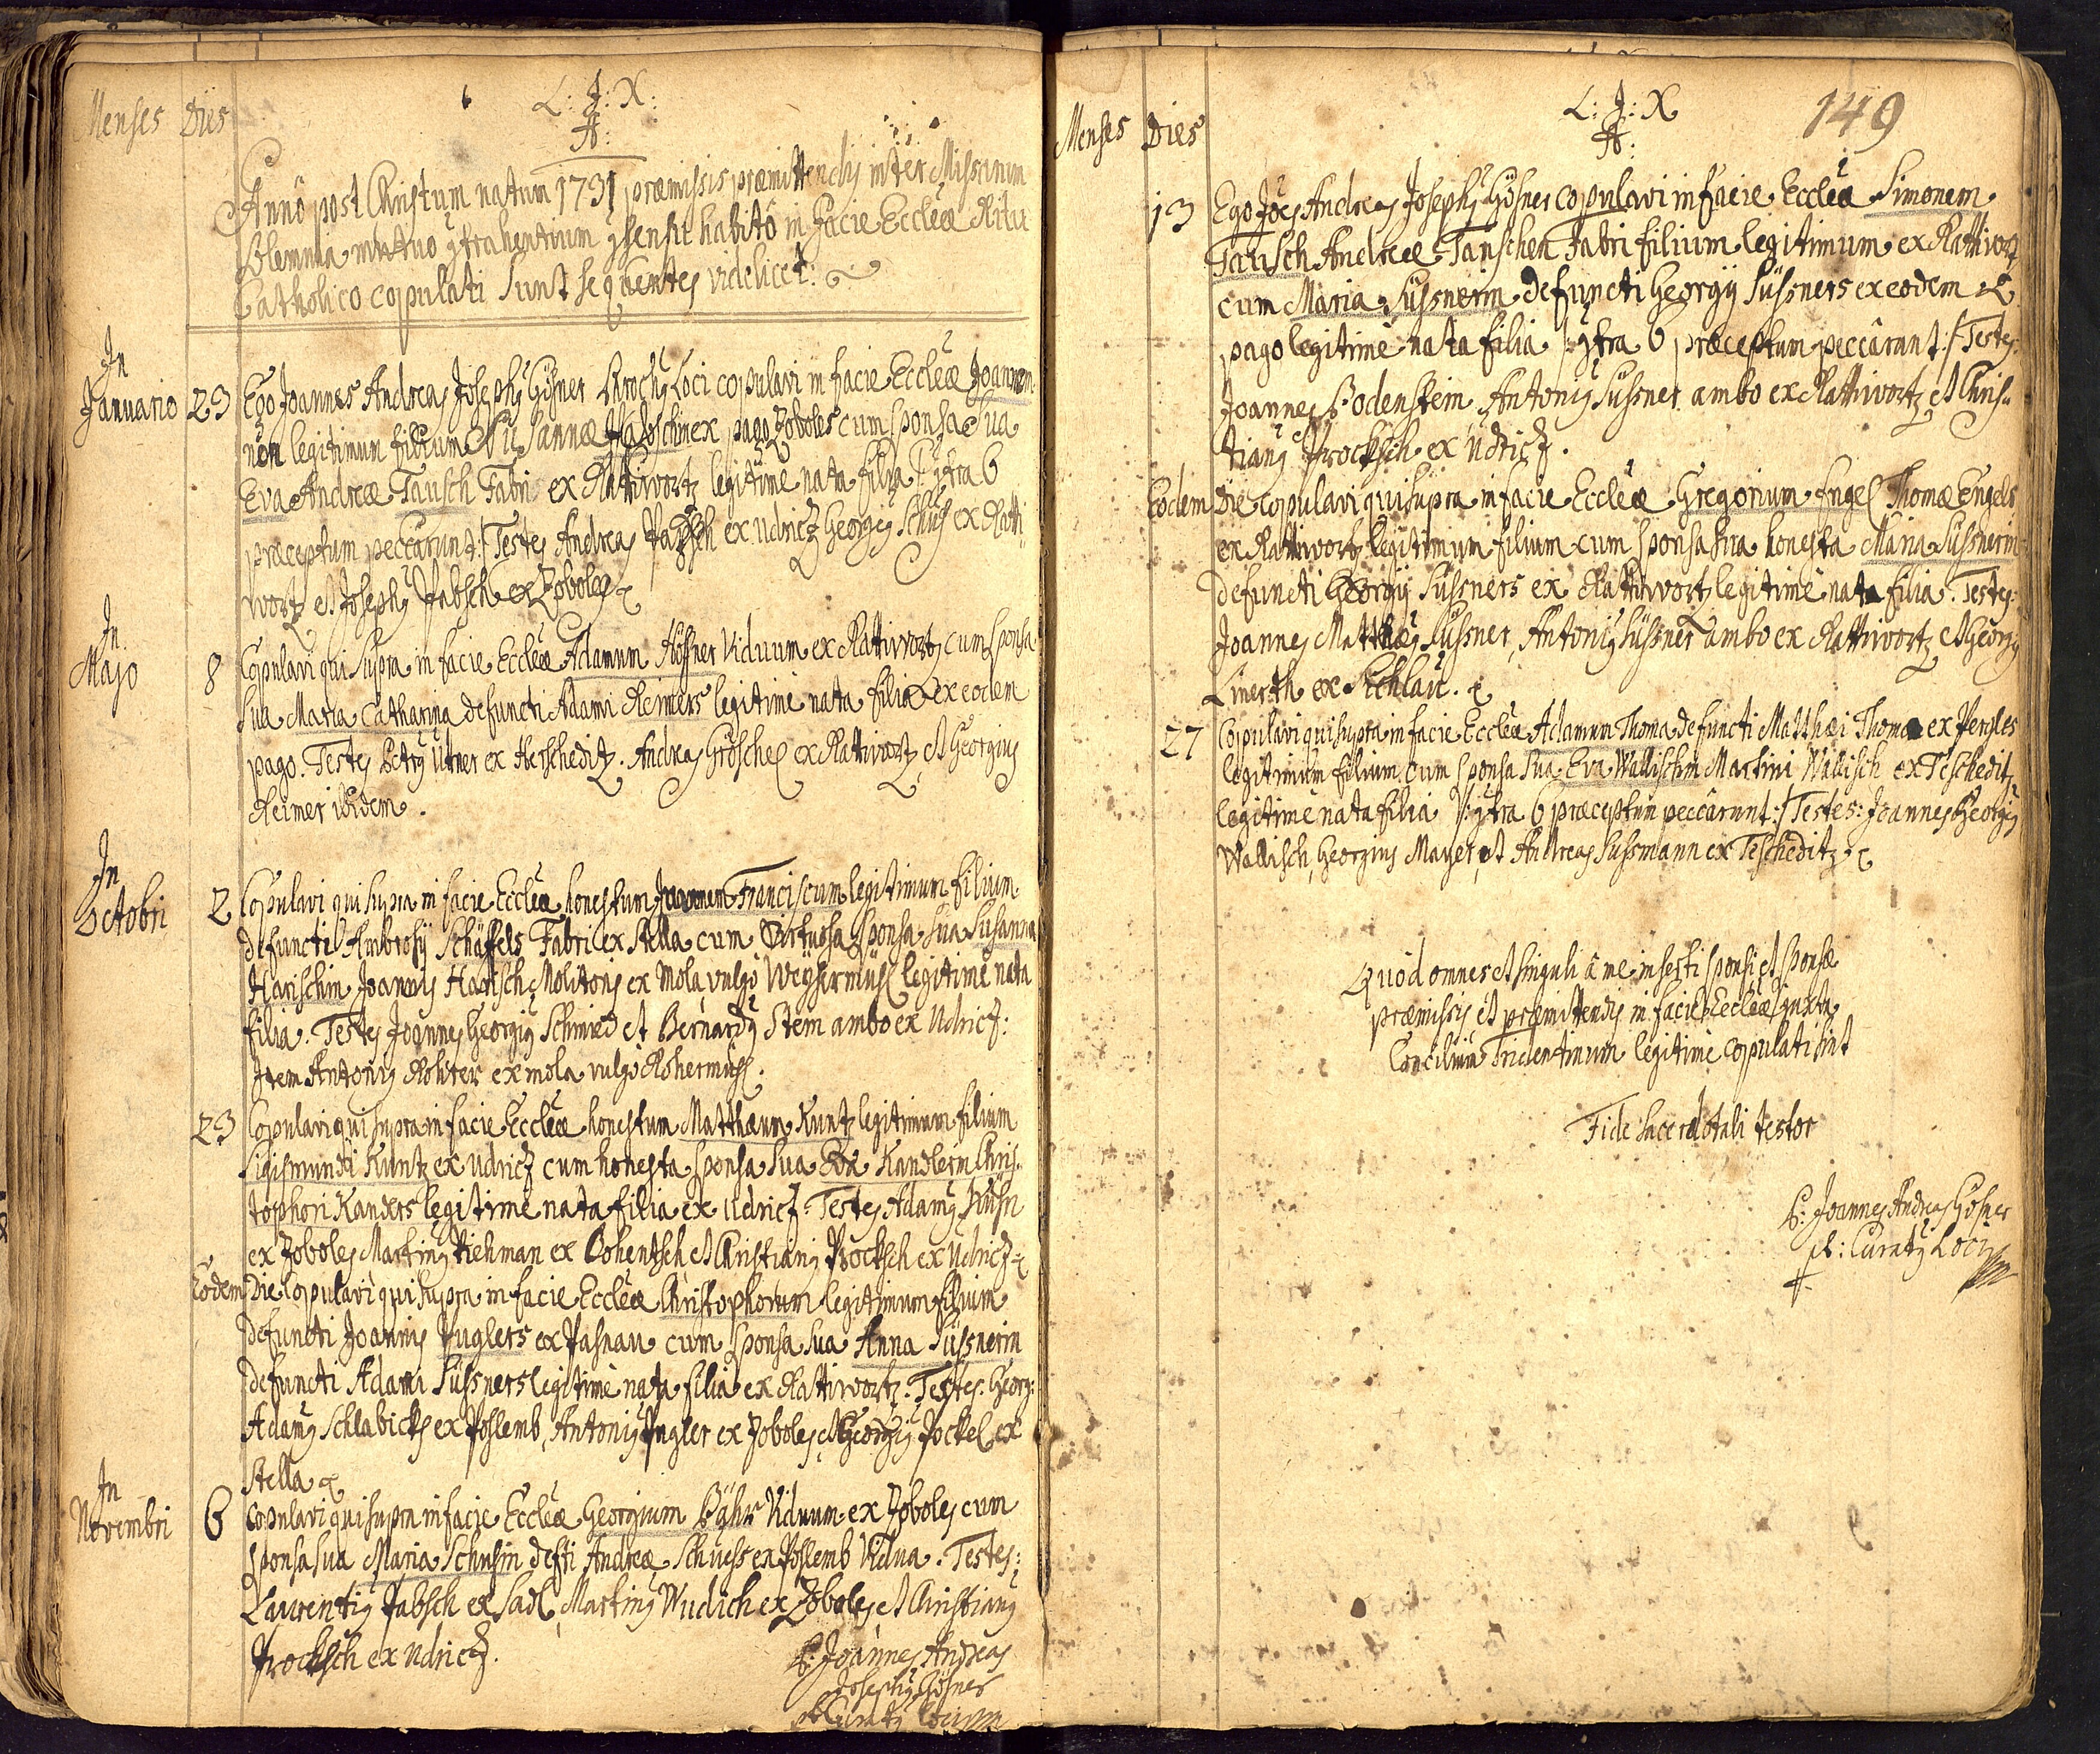 Menses Dies
L: J: X:
A:
Anno post Christum natum 1731 præmissis præmittendis inter Missarum
Solemnia mutuo 9trahentium 9sensu habitô in facie Eccleæ Ritu
Catholico copulati sunt sequentes videlicet:
In
Januario 23 Ego Joannes Andreas Josephy Gösner Paroch9 Loci copulavi in facie Eccleæ Joannem
non legitimum filium Susannæ Pabschin ex pago Zoboles cum sponsa sua
Eva Andreæ Tausch Fabri ex Rattiwortz legitime nata filia /: 9tra 6
præceptum peccarunt :/ Testes Andreas Pabsch ex Udricz Georgy Schus ex Ratti-
wortz et Josephy Pabsch ex Zoboles
In
Majo 8 Copulavi qui supra in facie Eccleæ Adamum Hösner Viduum ex Rattiwortz cum sponsa
sua Maria Catharina defuncti Adami Reimers legitimè nata filia ex eodem
pago. Testes Petry Utner ex Herscheditz. Andreas Gröschel ex Rattiwortz, et Georgius
Reimer ibidem.
In
Octobri 2 Copulavi qui supra in facie Eccleæ honestum Joannem Franciscum legitimum filium
defuncti Ambrosÿ Schäffels Fabri ex Stella cum Virtuosa sponsa sua Susanna
Harischin Joannis Harisch Molitoris ex mola vulgò Weyhermühl legitimè nata
filia. Testes Joannes Georgiy Schmied et Bernardy Stein ambo ex Udricz:
Item Antoniy Rohrer ex mola vulgò Rohermühl.
23 Copulavi qui supra in facie Eccleæ honestum Matthæum Kuntz legitimum filium
Sigismundi Kuntz ex Udricz cum honesta sponsa sua Eva Kandlerin Chris-
tophori Kanders legitime nata filia ex Udricz. Testes Adamy Kuhn
ex Zoboles Martiny Piehman ex Bohentsch et Christiany Procksch ex Udricz
Eodem Die Copulavi qui supra in facie Eccleæ Christophorum legitimum filium
defuncti Joannis Puglers ex Pasnau cum sponsa sua Anna Süssnerin
defuncti Adami Süssners legitimè nata filia ex Rattiwortz. Testes. Georg:
Adamy Schlabicks ex Poslemb, Antoniy Pugler ex Zoboles et Georgiy Jockel ex
Stella
In
Novembri 6 Copulavi qui supra in facie Eccleæ Georgium Bähr Viduum ex Zoboles cum
sponsa sua Maria Schusin defti Andreæ Schuess ex Poslemb Vidua. Testes:
Laurentiy Pabsch ex Sadl, Martiny Wudich ex Zoboles et Christiany
Procksch ex Udricz.
P: Joannes Andreas
Josephy Gösner
Curaty Loci
Menses Dies
L: J: X
A:
149
13 Ego Joes Andreas Josephy Gösner copulavi in facie Eccleæ Simonem
Tausch Andreæ Tauschen Fabri filium legitimum ex Rattiwortz
cum Maria Süssnerin defuncti Georgÿ Süssners ex eodem
pago legitimè nata filia /: 9tra 6 præceptum peccarunt :/ Testes.
Joannes Bodenstein Antoniy Süssner ambo ex Rattiwortz et Chris-
tiany Procksch ex Udricz.
Eodem Die copulavi qui supra in facie Eccleæ Gregorium Engel Thomæ Engels
ex Rattiwortz legitimum filium cum sponsa sua honesta Maria Süssnerin
defuncti Georgÿ Süssners ex Rattiwortz legitimè nata filia. Testes:
Joannes Matthæy Süssner, Antoniy Süssner ambo ex Rattiwortz et Georgy
Linerth ex Sichlau.
27 Copulavi qui supra in facie Eccleæ Adamum Thoma defuncti Matthæi Thoma ex Pergles
legitimum filium cum sponsa sua Eva Wallischin Martini Wallisch ex Tescheditz
legitimè nata filia /: 9tra 6 præceptum peccarunt :/ Testes: Joannes Georgiy
Wallisch, Georgius Mayer, et Andreas Süssmann ex Tescheditz
Quod omnes et singuli à me inserti sponsi et sponsæ
præmissis et præmittendis in facie Eccleæ juxta
Concilium Tridentinum legitimè copulati sint
Fide Sacerdotali testor
P: Joannes Andreas Gösner
p.t: Curaty Loci